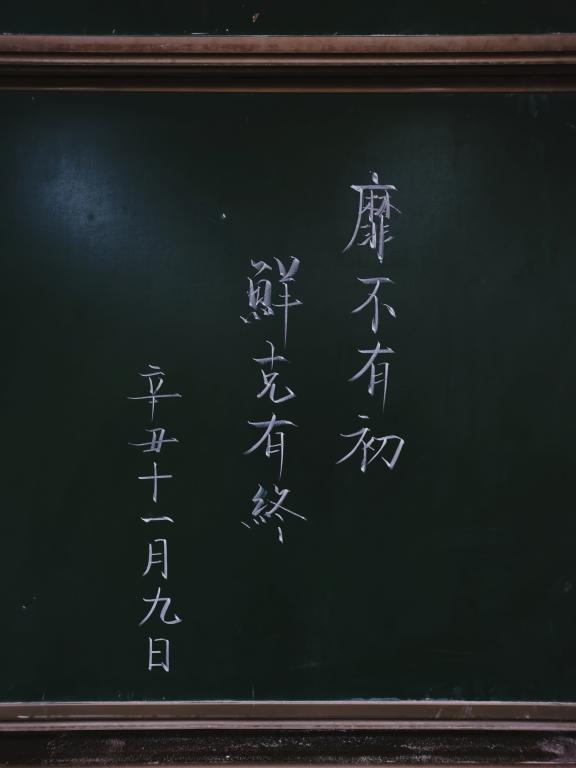 靡不有初
鮮克有終
辛丑十一月九日